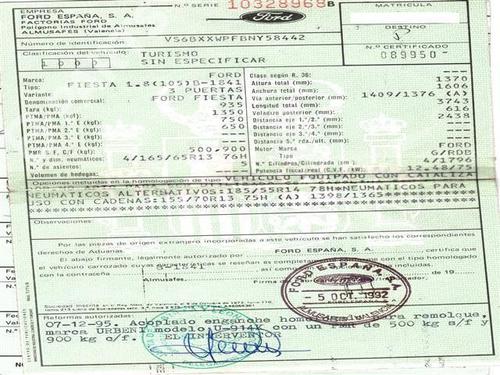 EMPRESA
FORD ESPAÑA, S. A.
FACTORIAS FORD
Polígono Industrial de Almusafes
ALMUSAFES (Valencia)
N.º SERIE 10328968 B
Ford
MATRICULA
DESTINO
Número de identificación: VS6BXXWPFBNY58442
N.º CERTIFICADO
089950-
Clasificación del vehículo: TURISMO
1000 SIN ESPECIFICAR
Marca: FORD
Tipo: FIESTA 1.8(105)B-1841
Variante: 3 PUERTAS
Denominación comercial: FORD FIESTA
Tara (kg): 935
PTMA/PMA (kg): 1350
PTMA/PMA 1.º E (kg): 750
PTMA/PMA 2.º E (kg): 650
PTMA/PMA 3.º E (kg): --
PTMA/PMA 4.º E (kg): --
PMR S.F. C/F (kg): 500,900
N.º y dim. neumáticos: 4/165/65R13 76H
N.º de asientos: 5
Volumen de bodegas: --
Clase según R. 36: --
Altura total (mm): 1370
Anchura total (mm): 1606
Vía anterior/posterior (mm): 1409/1376 (A)
Longitud total (mm): 3743
Voladizo posterior (mm): 616
Distancia eje 1.º/2.º (mm): 2438
Distancia eje 2.º/3.º (mm): --
Distancia eje 3.º/4.º (mm): --
Motor Marca FORD
Tipo
N.º Cilindros/Cilindrada (cm³): 4/1796
Potencia fiscal/real (C.V.F. kW): 12.48/75
Opciones incluidas en la homologación de tipo VEHICULO EQUIPADO CON CATALIZA
NEUMATICOS ALTERNATIVOS:185/55R14 78H=NEUMATICOS PARA
USO CON CADENAS:155/70R13 75H (A) 1398/1365*
Observaciones:
Por las piezas de origen extranjero incorporadas a este vehículo se han satisfecho los correspondientes
derechos de Aduanas.
El abajo firmante, legalmente autorizado por FORD ESPAÑA, S. A., certifica que
con la contraseña B-1841
Almusafes,
FORD ESPAÑA, S.A.
- 5 OCT. 1992
Reformas autorizadas:
07-12-95. Acoplado enganche remolque,
marca URBENI modelo U-914V con un PMR de 500 kg s/f y
900 kg c/f. EL INTERVENTOR